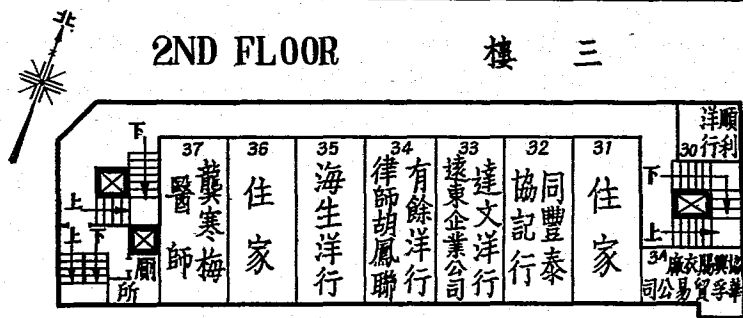 北
2ND FLOOR
三樓
下
上
上
下
廁
所
37
龔寒梅
醫師
36
住家
35
海生洋行
34
有餘洋行
律師胡鳳聯
33
達文洋行
遠東企業公司
32
同豐泰
協記行
31
住家
30
順利
洋行
下
上
3A
協興腸衣廠
華孚貿易公司